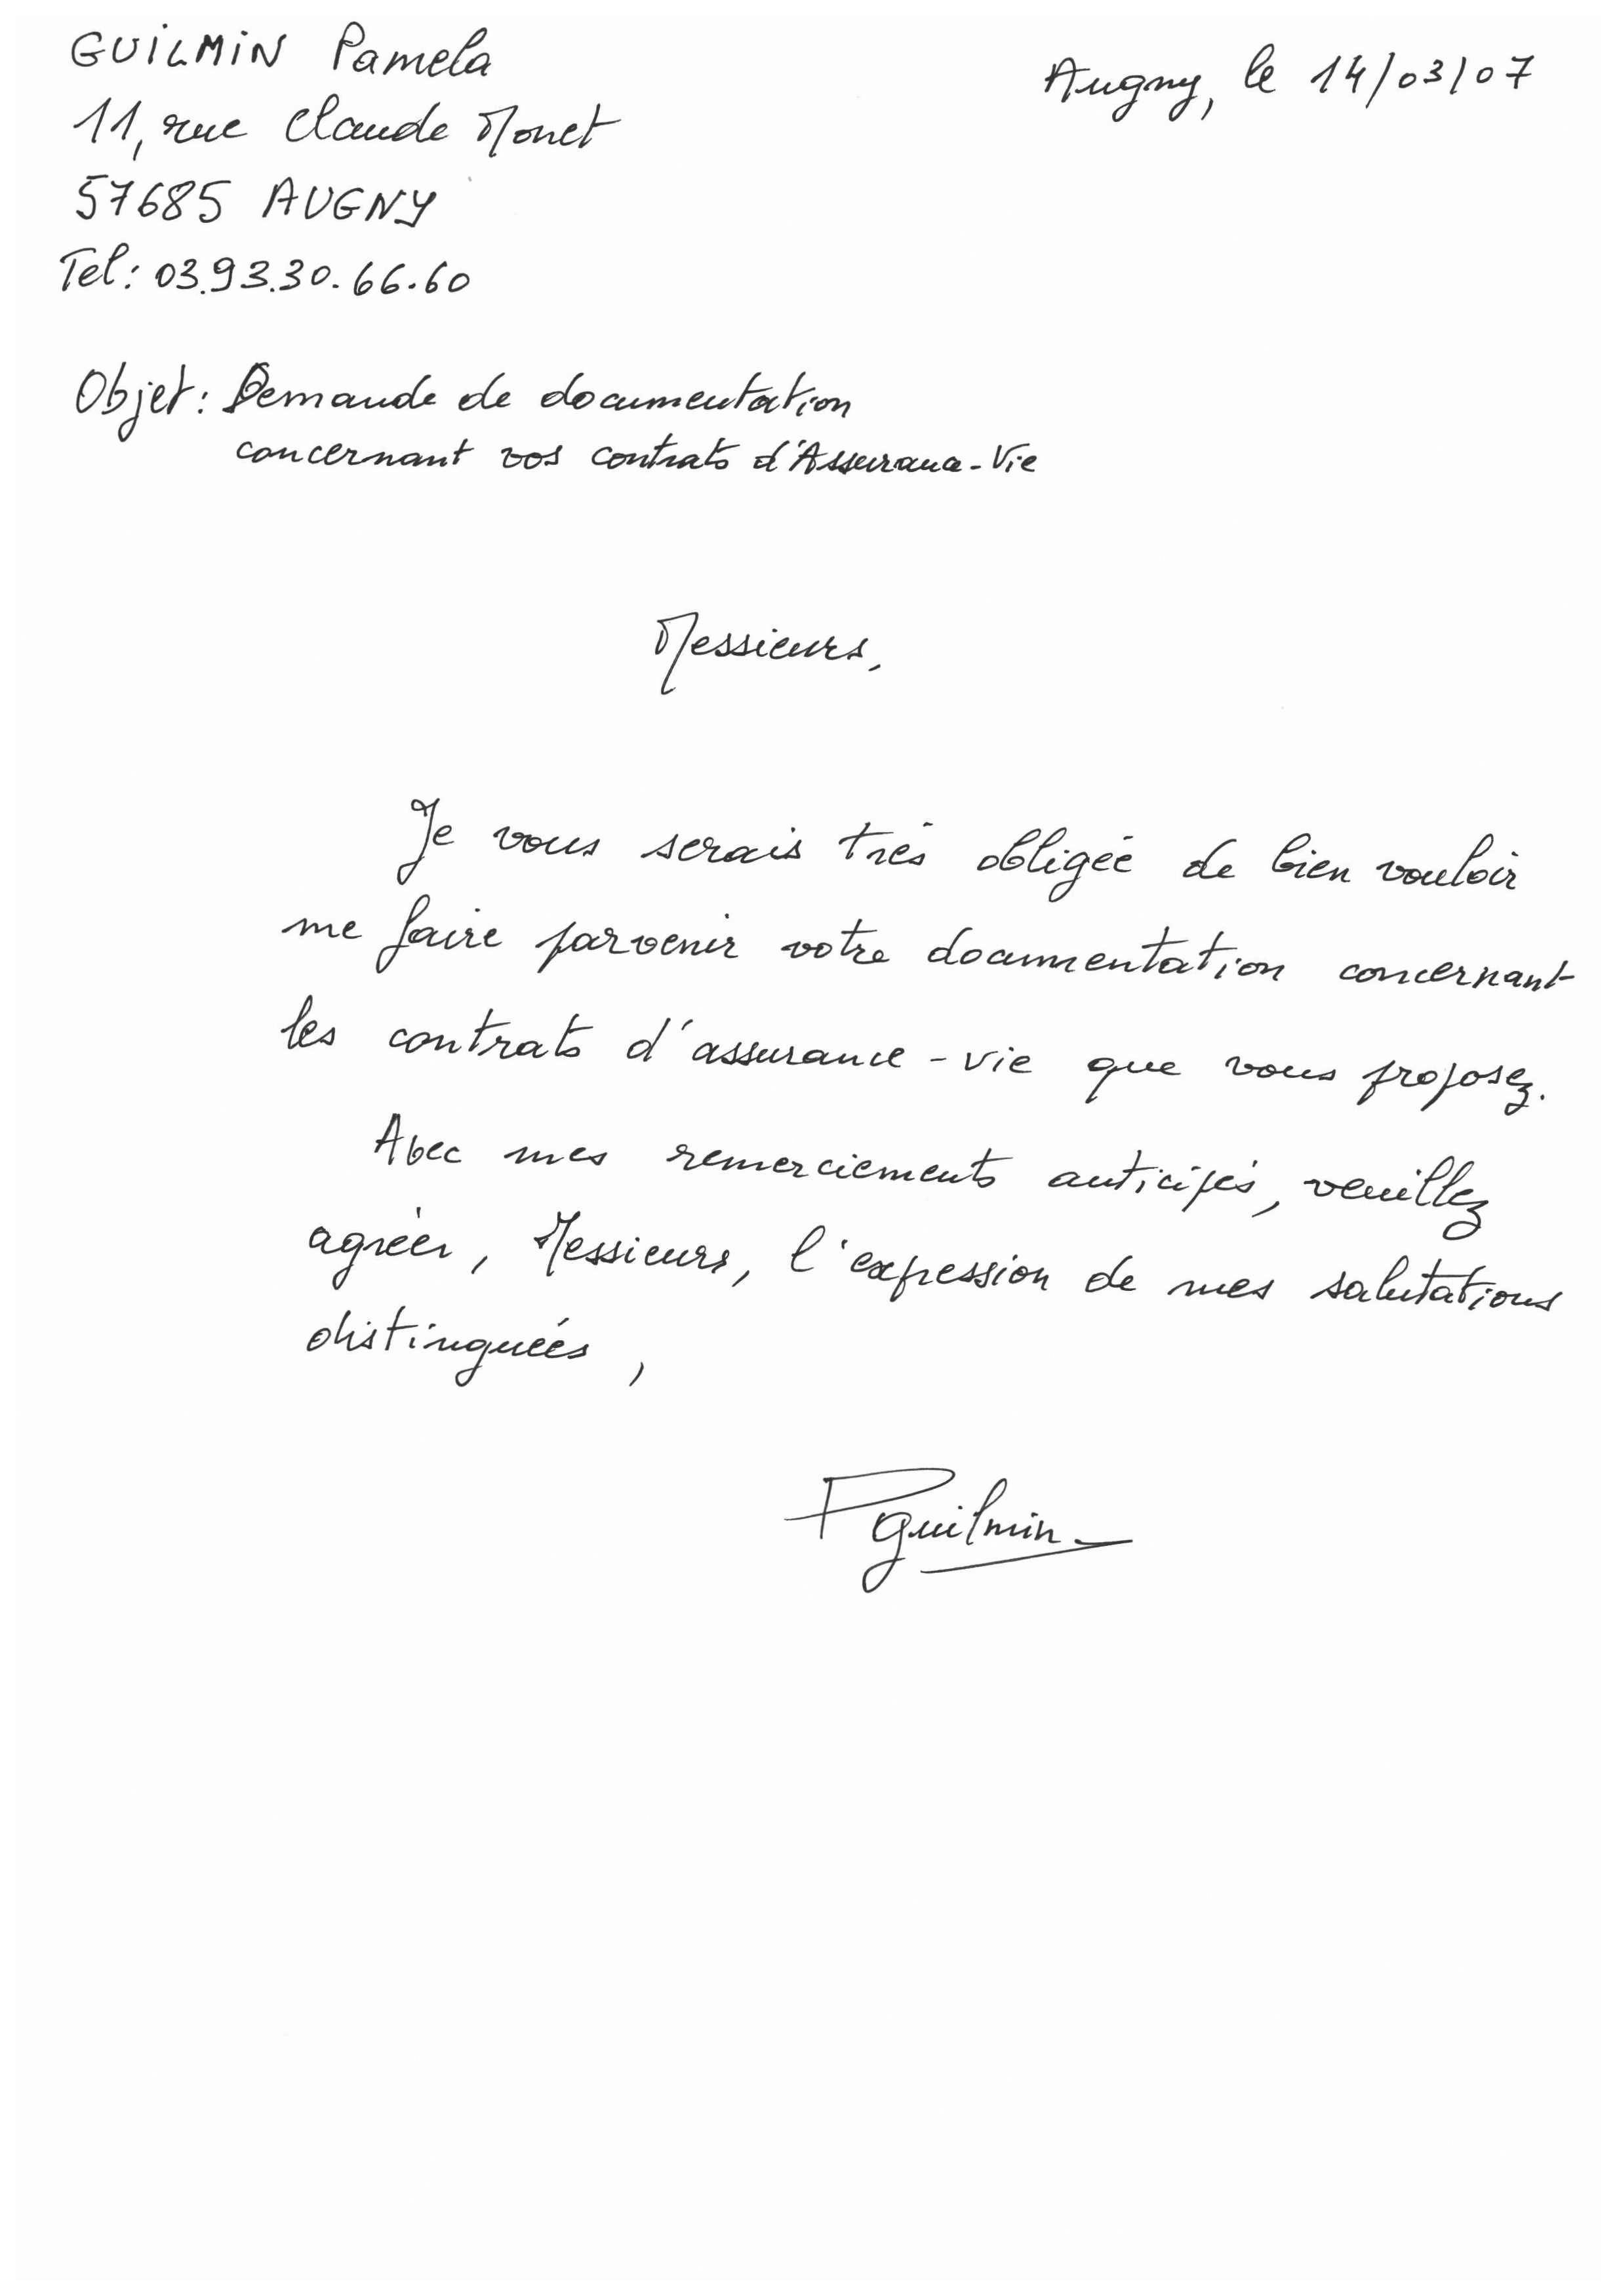 GUILMIN Pamela
Augny, le 14/03/07
11, rue Claude Monet
57685 AUGNY
Tel: 03.93.30.66.60
Objet: Demande de documentation
concernant vos contrats d'Assurance-Vie
Messieurs,
Je vous serais très obligée de bien vouloir
me faire parvenir votre documentation concernant
les contrats d'assurance-vie que vous proposez.
Avec mes remerciements anticipés, veuillez
agréer, Messieurs, l'expression de mes salutations
distinguées,
PGuilmin